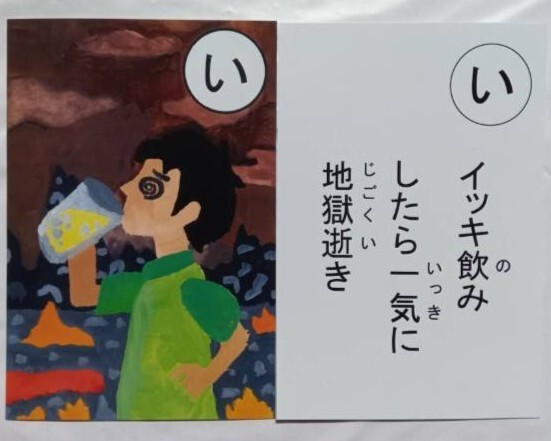 い
い
イッキ飲み
の
したら一気に
いっき
地獄逝き
じごくい